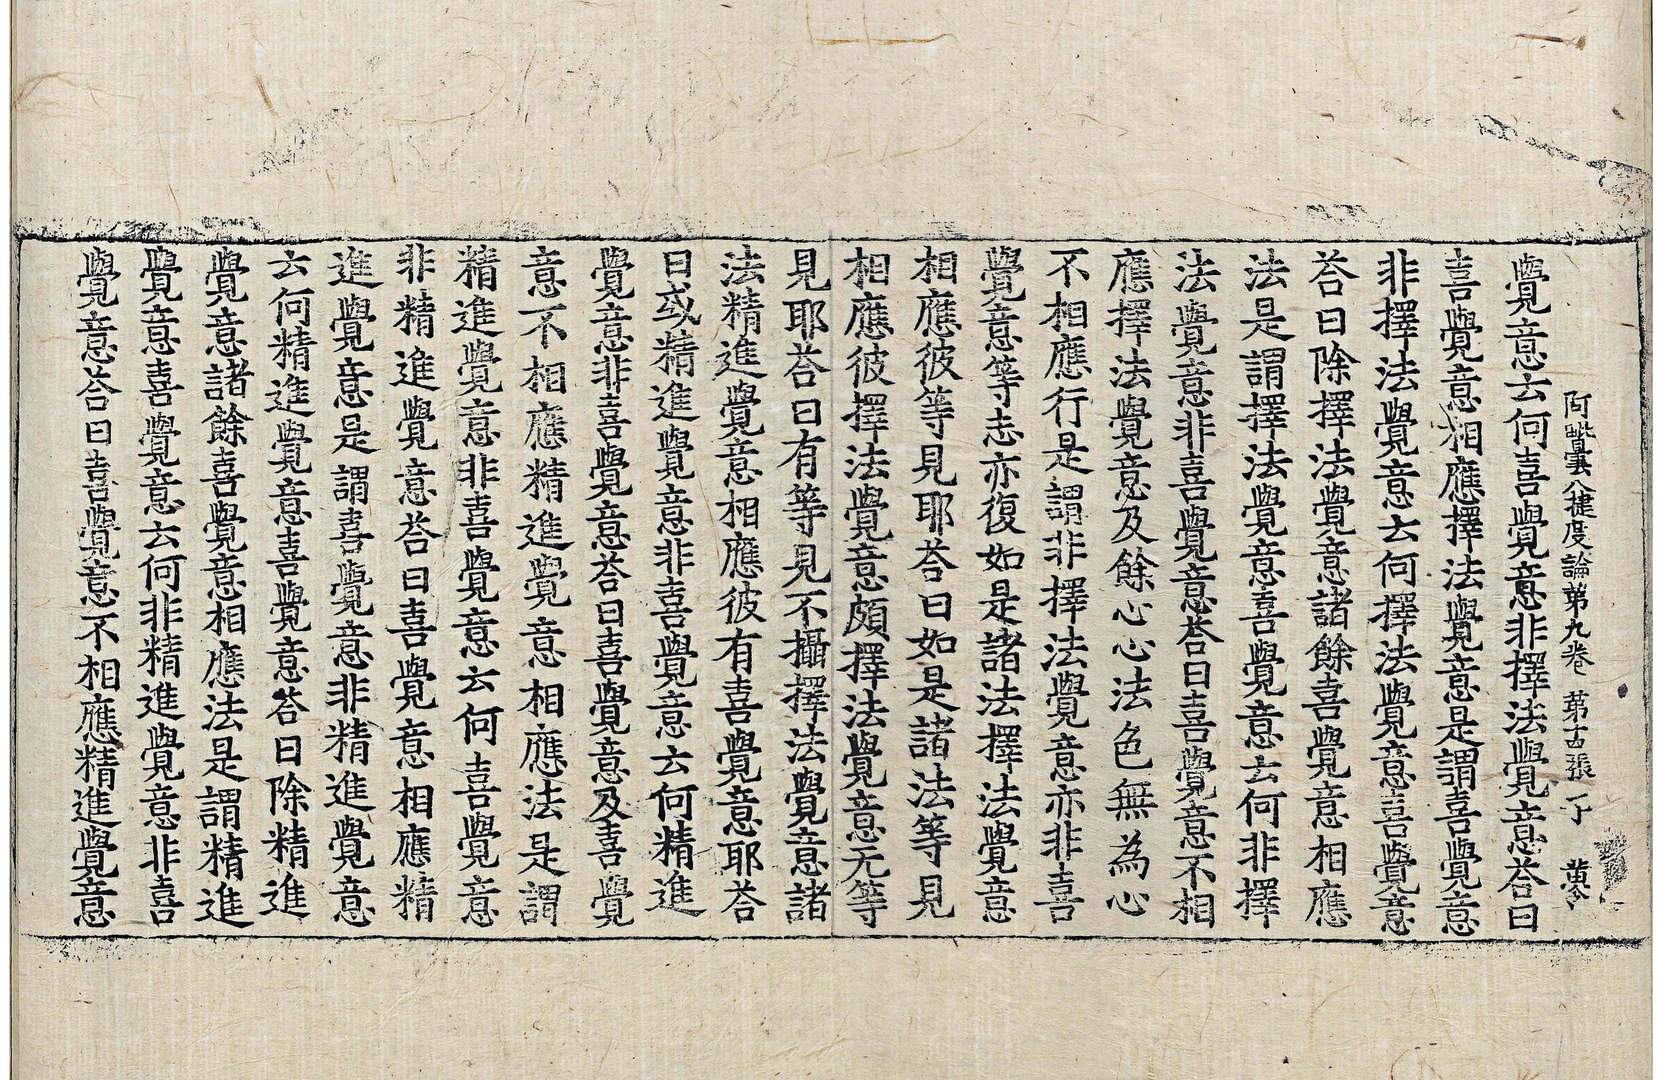 阿毗曇八揵度論第九卷 第十四張 丁
覺意云何喜覺意非擇法覺意荅曰
喜覺意相應擇法覺意是謂喜覺意
非擇法覺意云何擇法覺意喜覺意
荅曰除擇法覺意諸餘喜覺意相應
法是謂擇法覺意喜覺意云何非擇
法覺意非喜覺意荅曰喜覺意不相
應擇法覺意及餘心心法色無為心
不相應行是謂非擇法覺意亦非喜
覺意等志亦復如是諸法擇法覺意
相應彼等見耶荅曰如是諸法等見
相應彼擇法覺意頗擇法覺意无等
見耶荅曰有等見不攝擇法覺意諸
法精進覺意相應彼有喜覺意耶荅
曰或精進覺意非喜覺意云何精進
覺意非喜覺意荅曰喜覺意及喜覺
意不相應精進覺意相應法是謂
精進覺意非喜覺意云何喜覺意
非精進覺意荅曰喜覺意相應精
進覺意是謂喜覺意非精進覺意
云何精進覺意喜覺意荅曰除精進
覺意諸餘喜覺意相應法是謂精進
覺意喜覺意云何非精進覺意非喜
覺意荅曰喜覺意不相應精進覺意